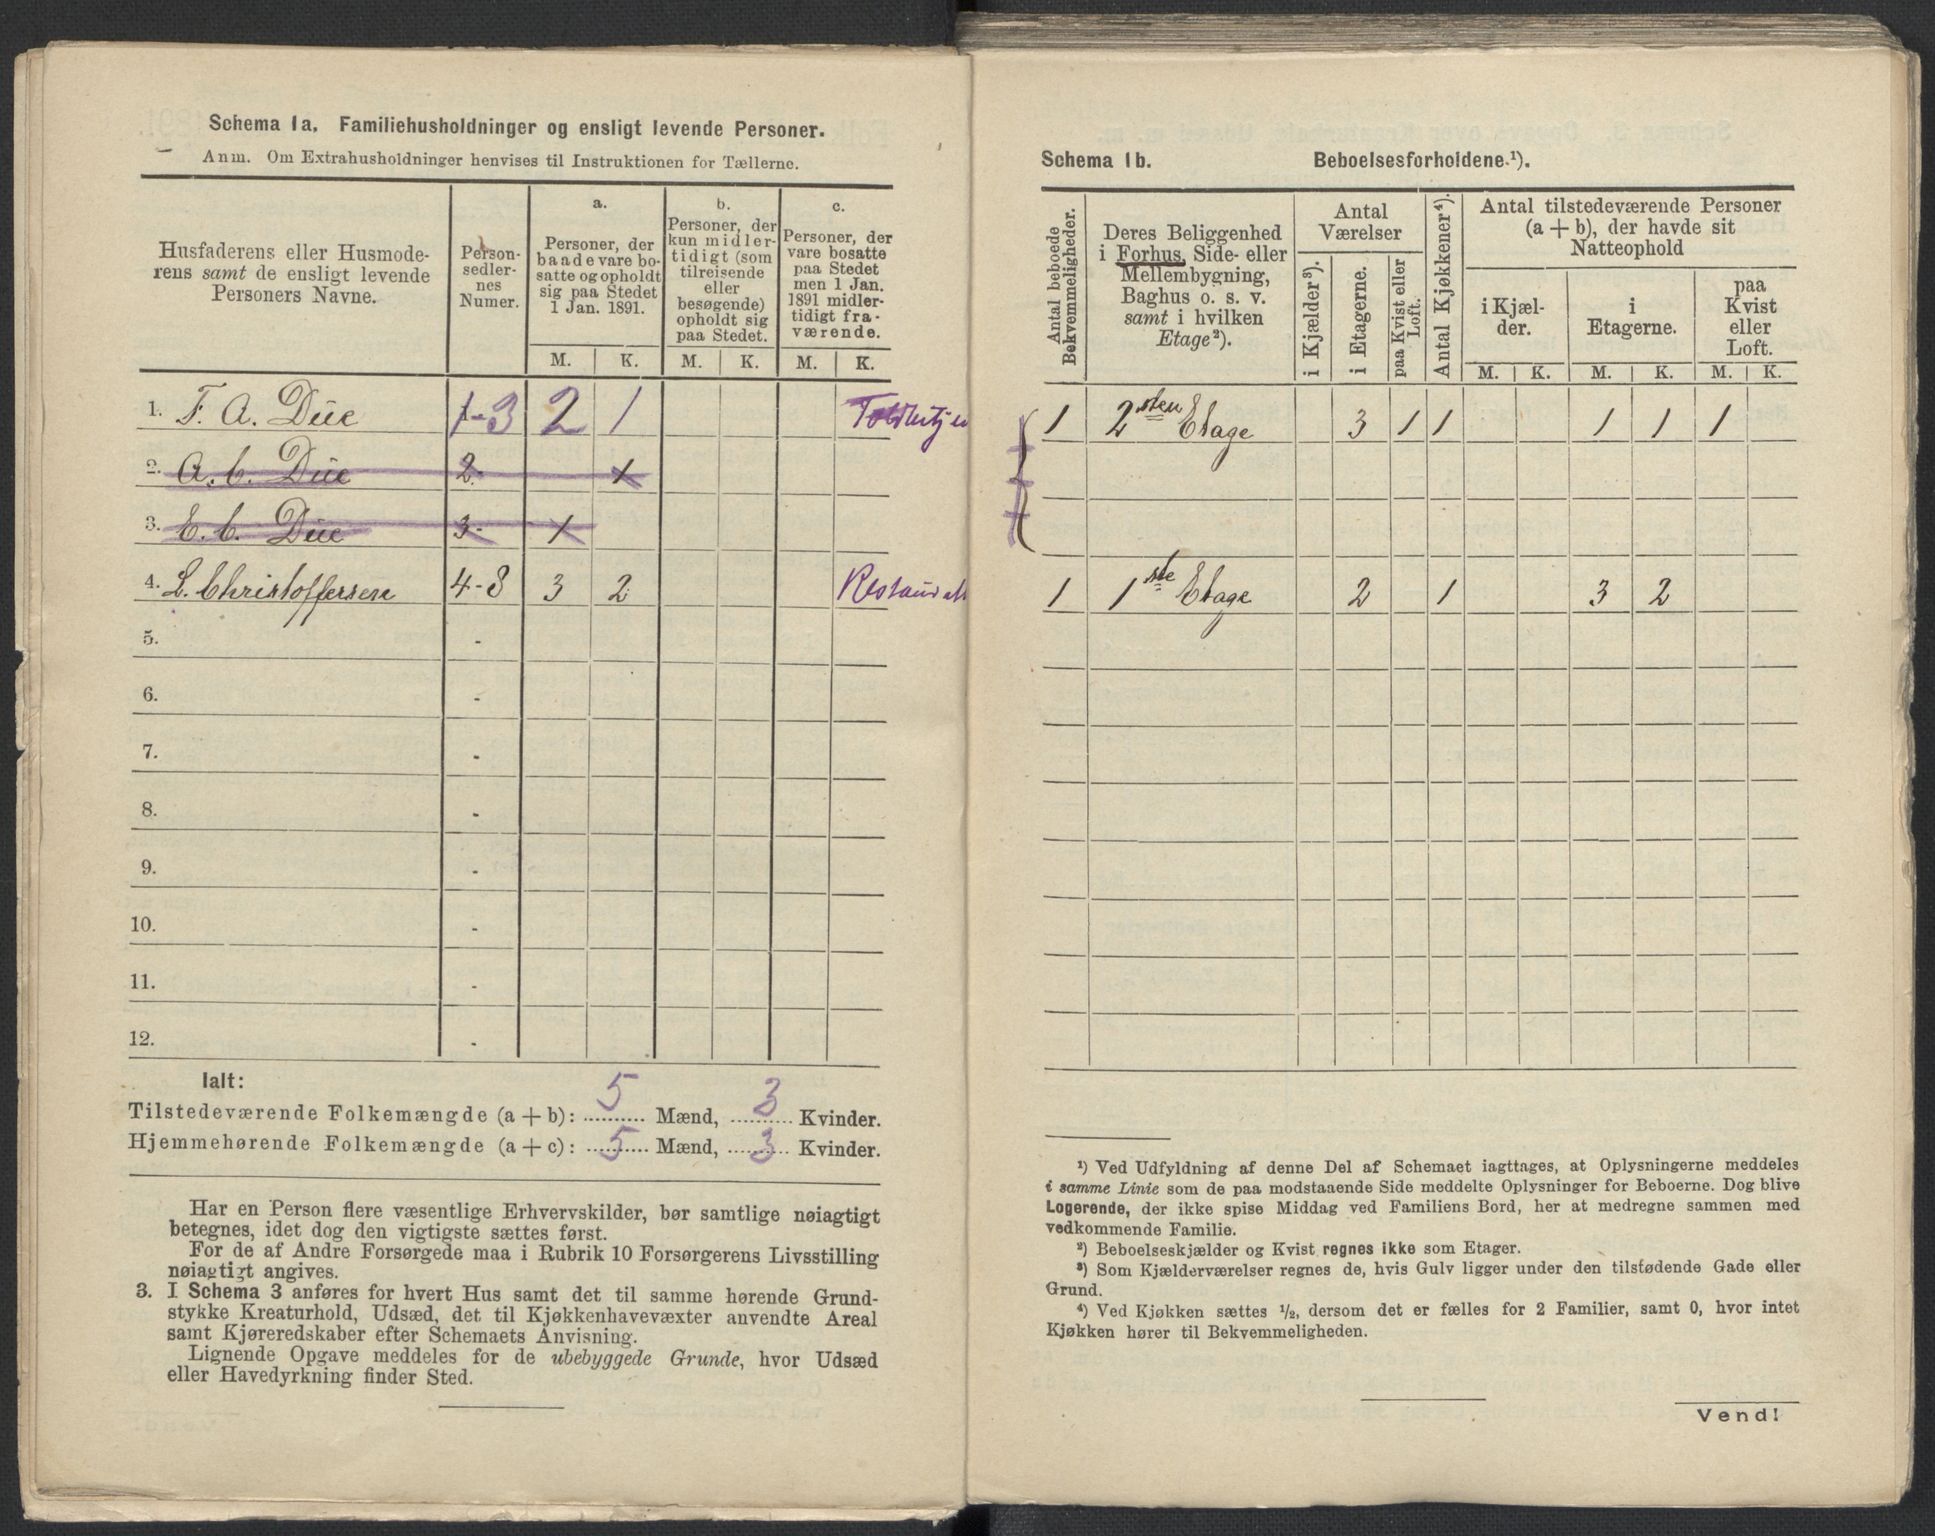 Schema 1a. Familiehusholdninger og ensligt levende Personer.
Anm. Om Extrahusholdninger henvises til Instruktionen for Tællerne.
Husfaderens eller Husmode-
rens samt de ensligt levende
Personers Navne.
Person-
sedler-
nes
Numer.
a.
Personer, der
baade vare bo-
satte og opholdt
sig paa Stedet
1 Jan. 1891.
b.
Personer, der
kun midler-
tidigt (som
tilreisende
eller
besøgende)
opholdt sig
paa Stedet.
c.
Personer, der
vare bosatte
paa Stedet
men 1 Jan.
1891 midler-
tidigt fra-
værende.
M. K. M. K. M. K.
1. F. A. Düe 1-3 2 1
2. A. C. Düe 2- 1
3. E. C. Düe 3- 1
4. L. Christoffersen 4-8 3 2
5. -
6. -
7. -
8. -
9. -
10. -
11. -
12. -
Ialt:
Tilstedeværende Folkemængde (a + b): 5 Mænd, 3 Kvinder.
Hjemmehørende Folkemængde (a + c): 5 Mænd, 3 Kvinder.
Har en Person flere væsentlige Erhvervskilder, bør samtlige nøiagtigt
betegnes, idet dog den vigtigste sættes først.
For de af Andre Forsørgede maa i Rubrik 10 Forsørgerens Livsstilling
nøiagtigt angives.
3. I Schema 3 anføres for hvert Hus samt det til samme hørende Grund-
stykke Kreaturhold, Udsæd, det til Kjøkkenhavevæxter anvendte Areal
samt Kjøreredskaber efter Schemaets Anvisning.
Lignende Opgave meddeles for de ubebyggede Grunde, hvor Udsæd
eller Havedyrkning finder Sted.
Schema 1b. Beboelsesforholdene.¹).
Antal beboede
Bekvemmeligheder.
Deres Beliggenhed
i Forhus, Side- eller
Mellembygning,
Baghus o. s. v.
samt i hvilken
Etage²).
Antal
Værelser
i Kjælder³).
i Etagerne.
paa Kvist eller
Loft.
Antal Kjøkkener⁴).
Antal tilstedeværende Personer
(a + b), der havde sit
Natteophold
i Kjæl-
der.
i
Etagerne.
paa
Kvist
eller
Loft.
M. K. M. K. M. K.
1 2sten Etage 3 1 1 1 1 1
1 1ste Etage 2 1 3 2
¹) Ved Udfyldning af denne Del af Schemaet iagttages, at Oplysningerne meddeles
i samme Linie som de paa modstaaende Side meddelte Oplysninger for Beboerne. Dog blive
Logerende, der ikke spise Middag ved Familiens Bord, her at medregne sammen med
vedkommende Familie.
²) Beboelseskjælder og Kvist regnes ikke som Etager.
³) Som Kjælderværelser regnes de, hvis Gulv ligger under den tilstødende Gade eller
Grund.
⁴) Ved Kjøkken sættes ½, dersom det er fælles for 2 Familier, samt 0, hvor intet
Kjøkken hører til Bekvemmeligheden.
Vend!